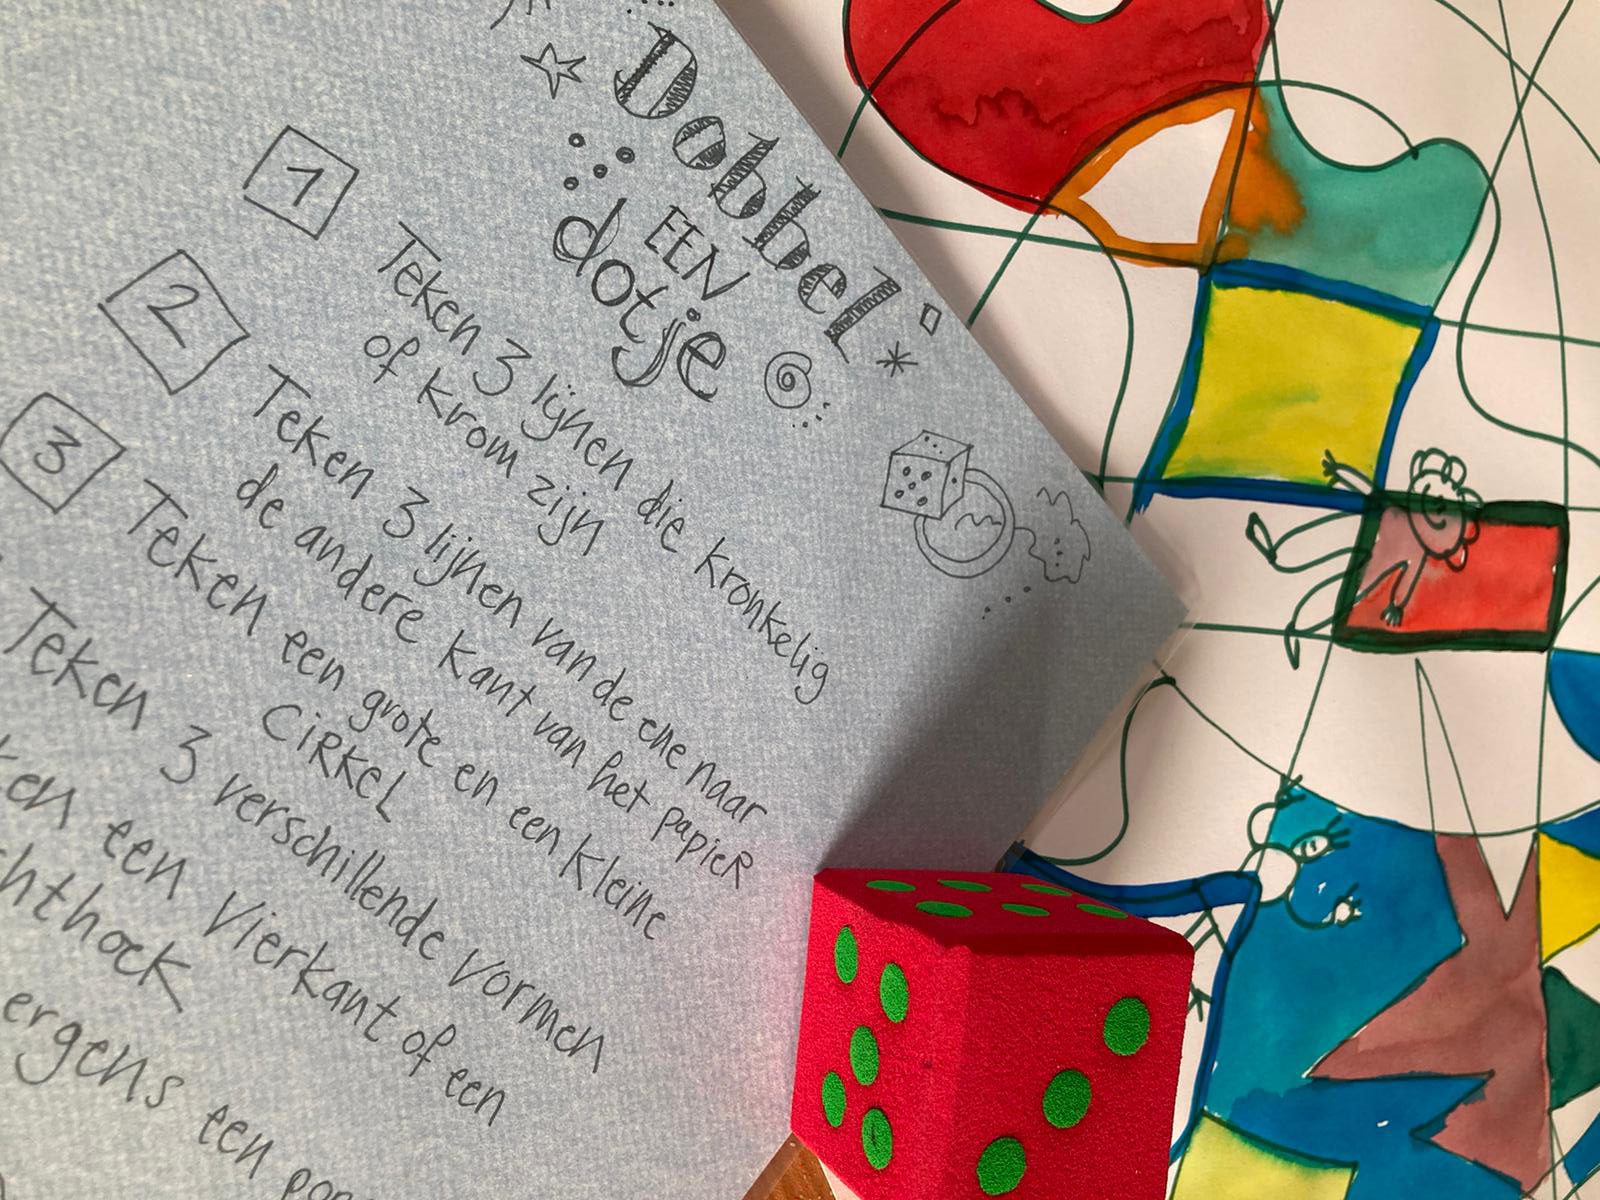 Dobbel
EEN
dotje
1 Teken 3 lijnen die kronkelig
of krom zijn
2 Teken 3 lijnen van de ene naar
de andere kant van het papieR
3 Teken een grote en een kleine
CiRKeL
Teken 3 verschillende vormen
en een vierkant of een
hthoek
ergens een